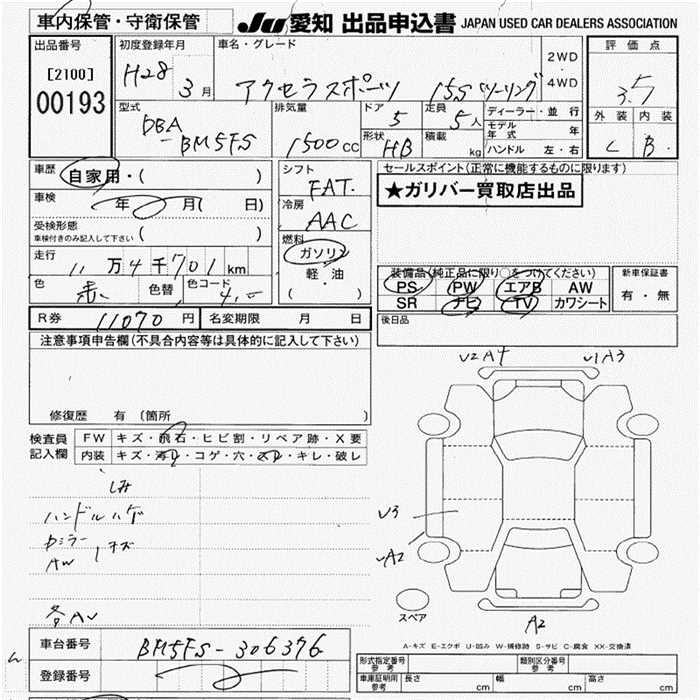 車内保管・守衛保管
JU 愛知 出品申込書 JAPAN USED CAR DEALERS ASSOCIATION
出品番号
[2100]
00193
初度登録年月
H28
3 月
車名・グレード
アクセラスポーツ 15Sツーリング
2WD
4WD
評価点
3.5
外装 内装
C B
型式
DBA
-BM5FS
排気量
1500 CC
ドア
5
定員
5 人
形状
HB
積載
kg
ディーラー・並行
モデル年式 年
ハンドル 左・右
車歴
自家用・( )
車検
年 月( 日)
受検形態
車検付きのみ記入して下さい ( )
走行
11 万 4 千 701 km
色
赤
色替
色コード
シフト
FAT.
冷房
AAC
燃料
ガソリン
軽・油
( )
セールスポイント(正常に機能するものに限ります)
★ガリバー買取店出品
装備品(純正品に限り○をつけてください)
PS PW エアB AW
SR ナビ TV カワシート
新車保証書
有・無
後日品
R券 11070 円
名変期限 月 日
注意事項申告欄(不具合内容等は具体的に記入して下さい)
修復歴 有 (箇所 )
検査員
記入欄
FW キズ・飛石・ヒビ割・リペア跡・X要
内装 キズ・汚レ・コゲ・穴・スレ・キレ・破レ
しみ
ハンドルハゲ
Dミラー
AW
キズ
各AU
U2 A4
U1 A3
U3
UA2
A2
スペア
A-キズ E-エクボ U-凹み W-補修跡 S-サビ C-腐食 XX-交換済
車台番号
BM5FS-306376
登録番号
形式指定番号
参考
類別区分番号
参考
車庫証明用
参考
長さ cm
幅 cm
高さ cm